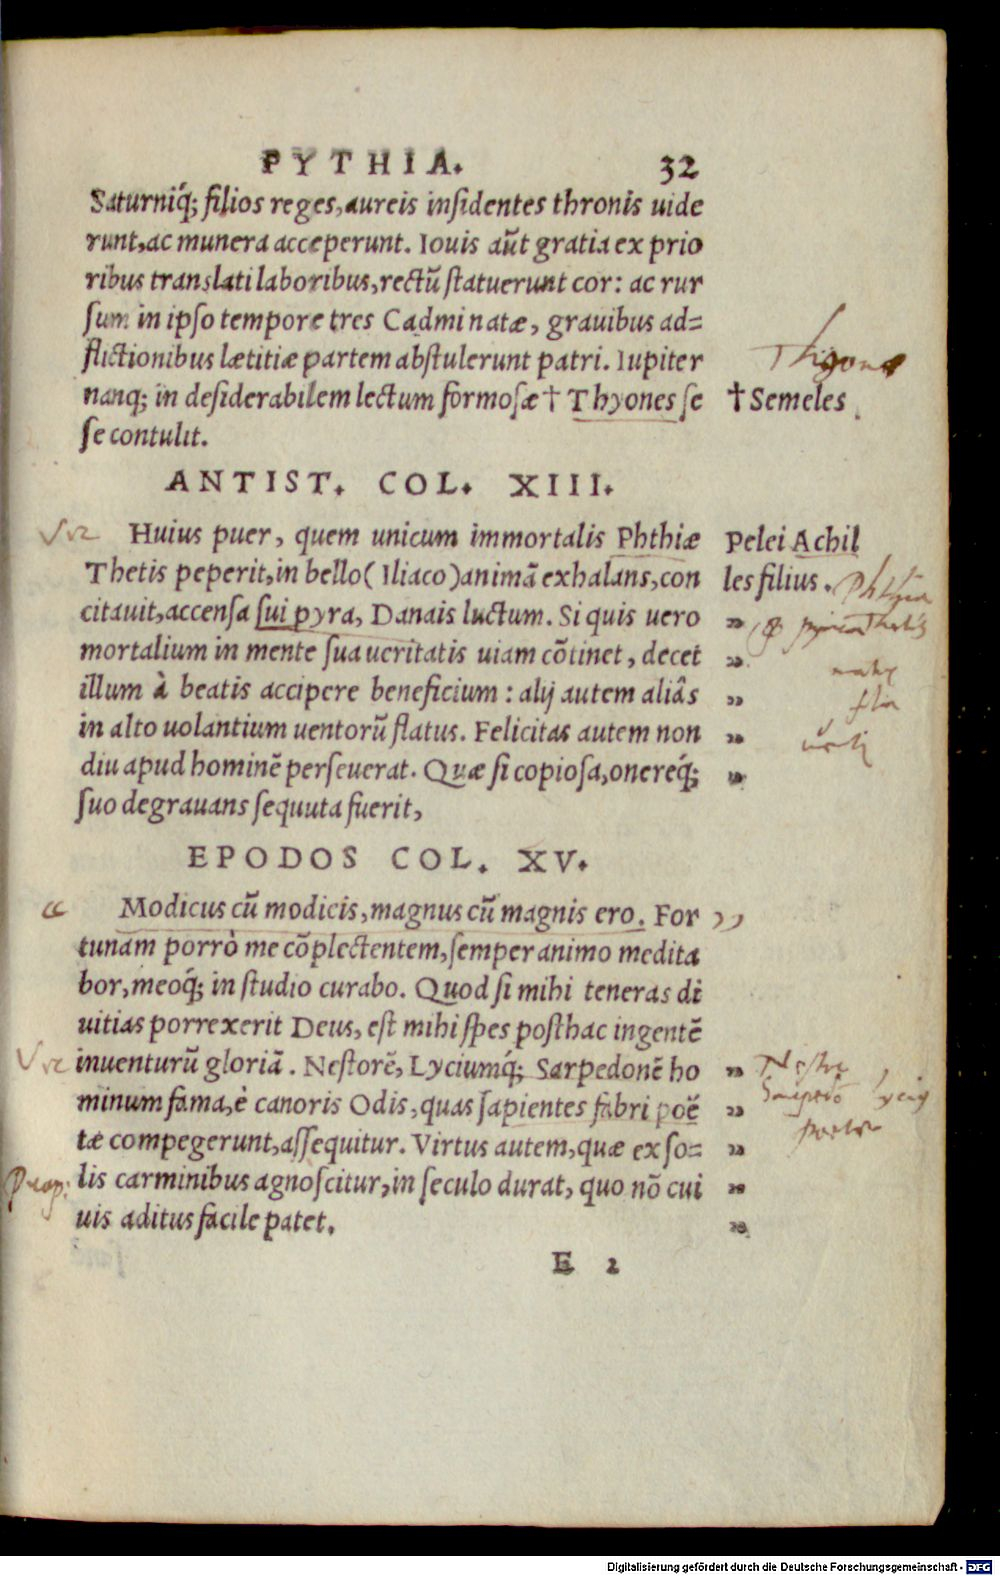 PYTHIA. 32
Saturniq́; filios reges, aureis insidentes thronis uide
runt, ac munera acceperunt. Iouis aũt gratia ex prio
ribus translati laboribus, rectũ statuerunt cor: ac rur
sum in ipso tempore tres Cadmi natæ, grauibus ad=
flictionibus lætitiæ partem abstulerunt patri. Iupiter
Thyone
nanq; in desiderabilem lectum formosæ † Thyones se † Semeles
se contulit.
ANTIST. COL. XIII.
Huius puer, quem unicum immortalis Phthiæ Pelei Achil
Thetis peperit, in bello (Iliaco) animã exhalans, con les filius.
citauit, accensa sui pyra, Danais luctum. Si quis uero „
mortalium in mente sua ueritatis uiam cõtinet, decet „
illum à beatis accipere beneficium: alij autem aliâs „
in alto uolantium uentorũ flatus. Felicitas autem non „
diu apud hominẽ perseuerat. Quæ si copiosa, onereq́; „
suo degrauans sequuta fuerit,
EPODOS COL. XV.
“ Modicus cũ modicis, magnus cũ magnis ero. For ,,
tunam porrò me cõplectentem, semper animo medita
bor, meoq́; in studio curabo. Quod si mihi teneras di
uitias porrexerit Deus, est mihi spes posthac ingentẽ
inuenturũ gloriã. Nestorẽ, Lyciumq́; Sarpedonẽ ho „ Nestor
minum fama, è canoris Odis, quas sapientes fabri poë̃ „
tæ compegerunt, assequitur. Virtus autem, quæ ex so= „
lis carminibus agnoscitur, in seculo durat, quo nõ cui „
uis aditus facile patet. „
E 2
Digitalisierung gefördert durch die Deutsche Forschungsgemeinschaft - DFG